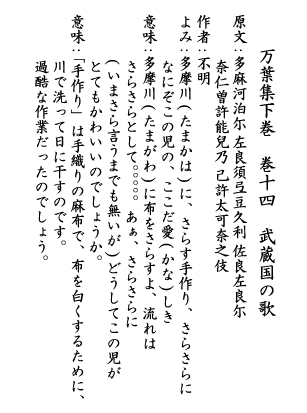 万葉集下巻　巻十四　武蔵国の歌
原文：多麻河泊尓 左良須弖豆久利 佐良左良尓
奈仁曽許能兒乃 己許太可奈之伎
作者：不明
よみ：多摩川(たまかは)に、さらす手作り、さらさらに
なにぞこの児の、ここだ愛(かな)しき
意味：多摩川(たまがわ)に布をさらすよ、流れは
さらさらとして。。。。 あぁ、さらさらに
(いまさら言うまでも無いが)どうしてこの児が
とてもかわいいのでしょうか。
意味：「手作り」は手織りの麻布で、布を白くするために、
川で洗って日に干すのです。
過酷な作業だったのでしょう。